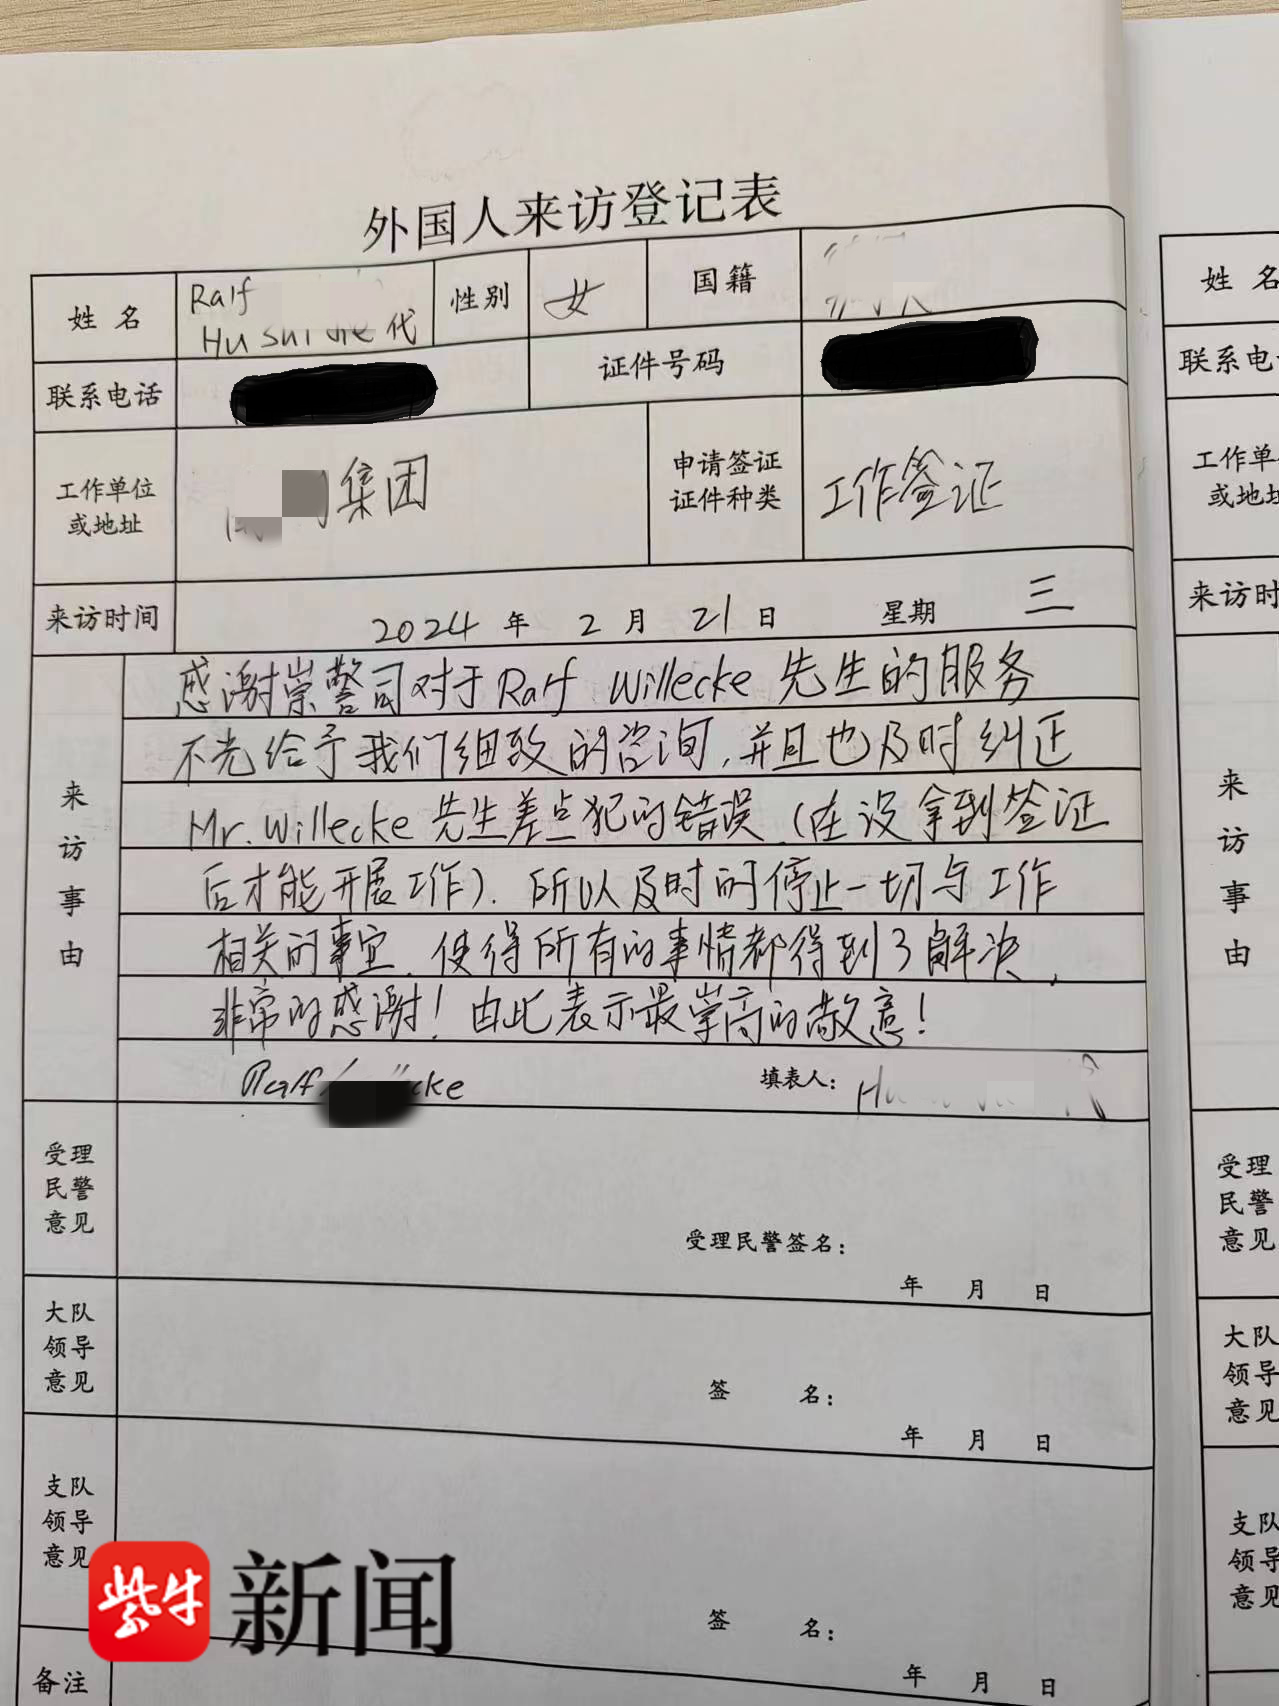 外国人来访登记表
姓名 Ralf 性别 女 国籍
代
联系电话 证件号码
工作单位 集团 申请签证 工作签证
或地址 证件种类
来访时间 2024 年 2 月 21 日 星期 三
来访事由
感谢崇警司对于Ralf Willecke 先生的服务
不光给予我们细致的咨询,并且也及时纠正
Mr. Willecke 先生差点犯的错误.(在没拿到签证
后才能开展工作).所以及时的停止一切与工作
相关的事宜.使得所有的事情都得到了解决,
非常的感谢!由此表示最崇高的敬意!
Ralf cke 填表人:
受理
民警
意见
受理民警签名:
年 月 日
大队
领导
意见
签 名:
年 月 日
支队
领导
意见
签 名:
年 月 日
备注
紫牛 新闻
姓 名
联系电
工作单
或地
来访时
来访事由
受理
民警
意见
大队
领导
意见
支队
领导
意见